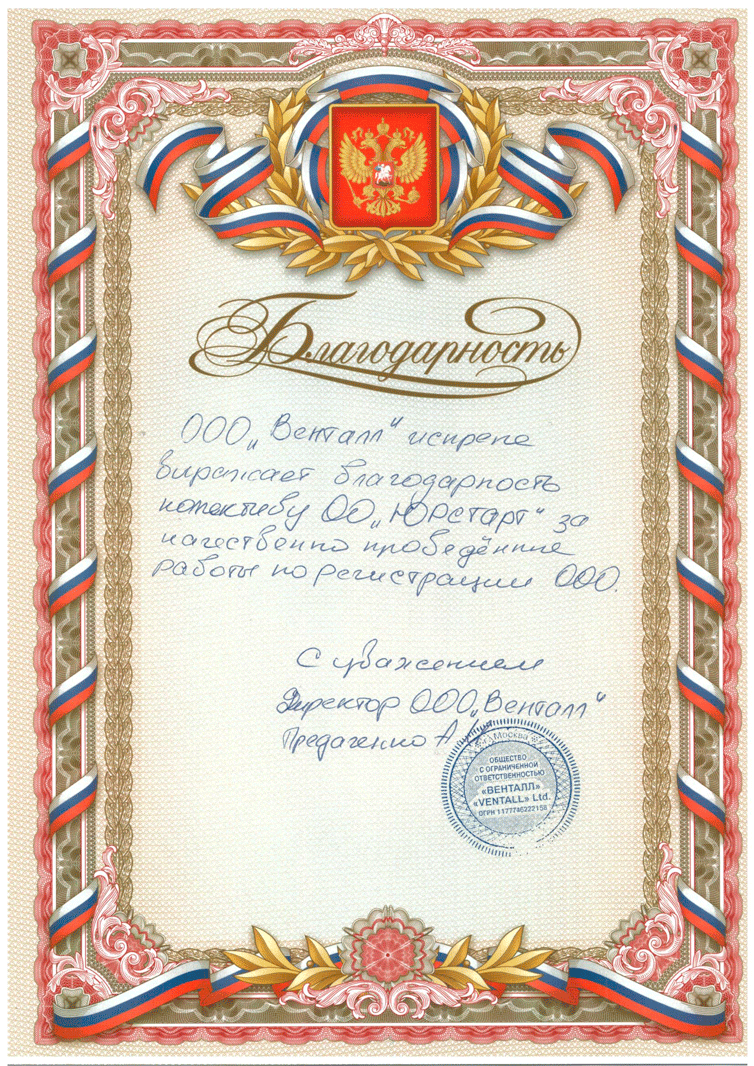 Благодарность
ООО „Венталл" искрене
выражает благодарность
колективу ОО „ЮРСТАРТ" за
качественно проведённые
работы по регистрации ООО.
С уважением
Директор ООО „Венталл"
А
г. Москва
ОБЩЕСТВО
С ОГРАНИЧЕННОЙ
ОТВЕТСТВЕННОСТЬЮ
«ВЕНТАЛЛ»
«VENTALL» Ltd.
ОГРН 1177746222158